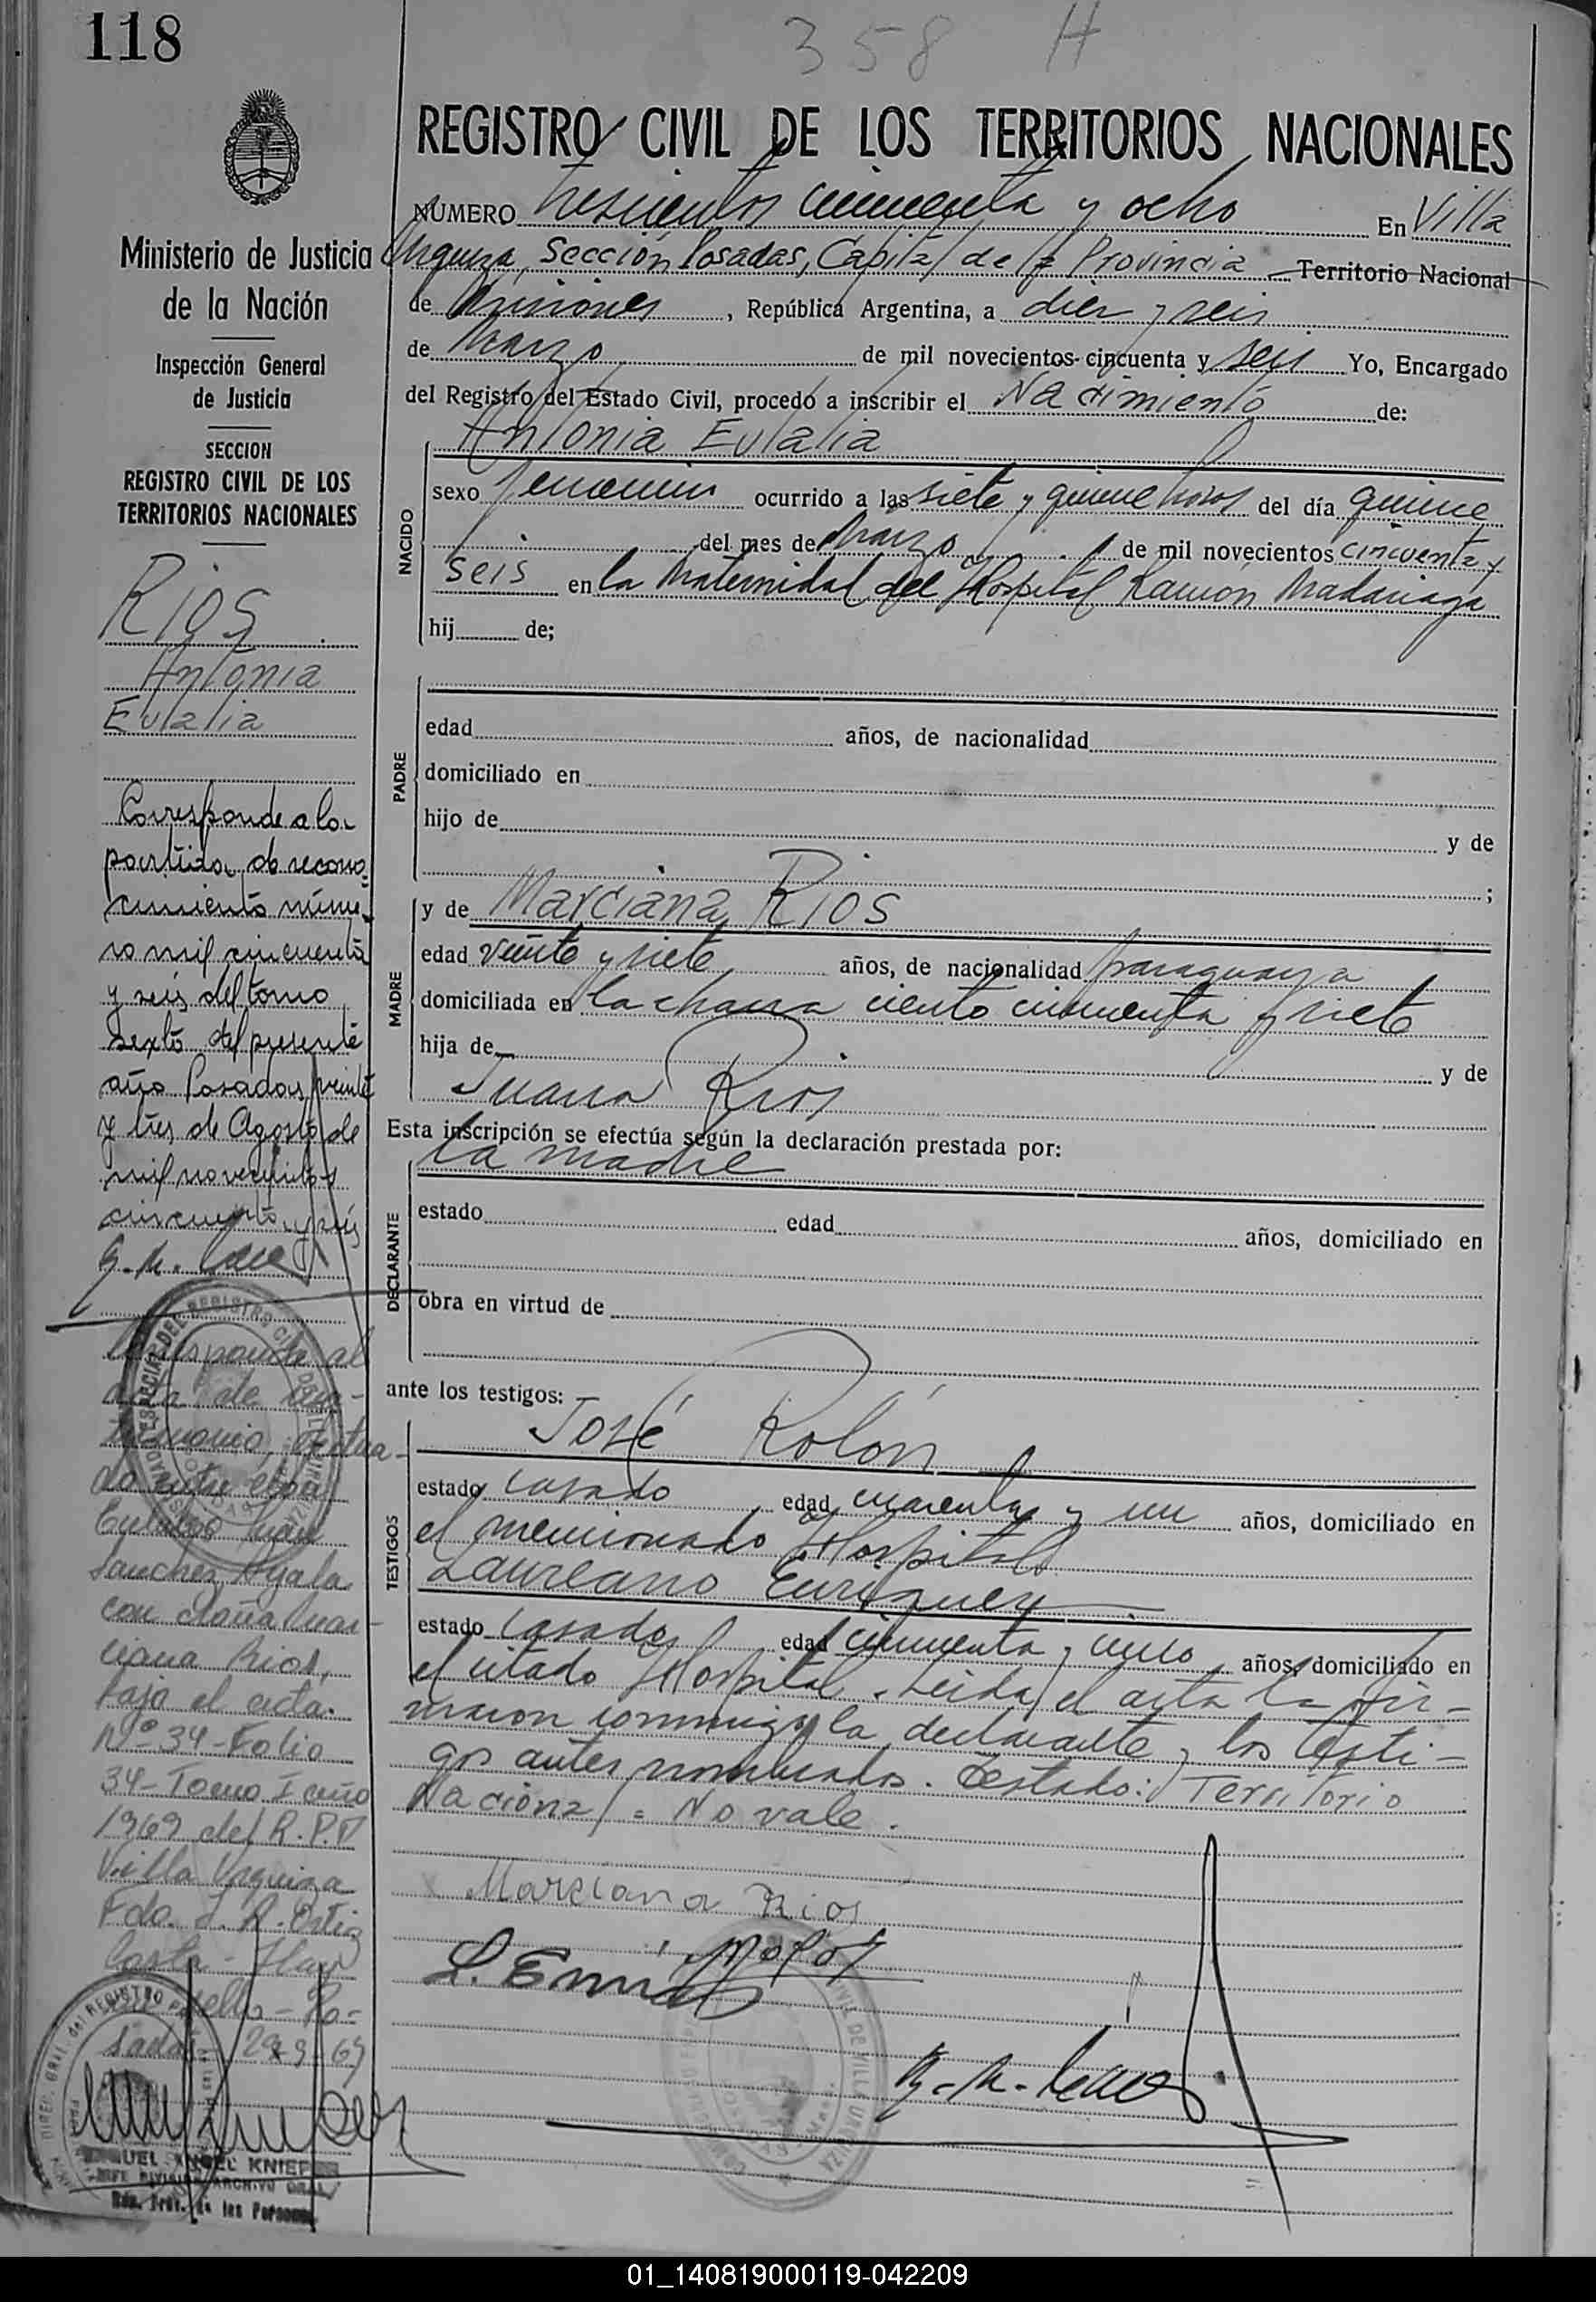 118
358 H
REGISTRO CIVIL DE LOS TERRITORIOS NACIONALES
NUMERO trescientos cincuenta y ocho En Villa
Urquiza, Sección Posadas, Capital de la Provincia Territorio Nacional
de Misiones, República Argentina, a diez y seis
de Marzo de mil novecientos cincuenta y seis Yo, Encargado
del Registro del Estado Civil, procedo a inscribir el Nacimiento de:
Ministerio de Justicia
de la Nación
Inspección General
de Justicia
SECCION
REGISTRO CIVIL DE LOS
TERRITORIOS NACIONALES
Rios
Antonia
Eulalia
Corresponde a la
partida de recono
cimiento núme-
ro mil cincuenta
y seis del tomo
sexto del presente
año Posadas, veinte
y tres de Agosto de
mil novecientos
cincuenta y seis
Corresponde al
acta de ma-
trimonio, efectua-
do entre
Juan
Sanchez Ayala
con doña Mar-
ciana Rios,
bajo el acta
Nº 34-Folio
34-Tomo I año
1969 del R.P.
Villa Urquiza
Fdo. J. R. Ortiz
Costa - Hay
sello - Po-
sadas 29-9-69
ANGEL KNIEF
JEFE DIVISION ARCHIVO GRAL
las Personas
NACIDO
Antonia Eulalia
sexo femenino ocurrido a las siete y quince horas del día quince
del mes de Marzo de mil novecientos cincuenta y
seis en la Maternidad del Hospital Ramón Madariaga
hij de;
PADRE
edad años, de nacionalidad
domiciliado en
hijo de y de
;
MADRE
y de Marciana Rios
edad veinte y siete años, de nacionalidad paraguaya
domiciliada en la chacra ciento cincuenta y siete
hija de y de
Juana Rios
Esta inscripción se efectúa según la declaración prestada por:
DECLARANTE
la madre
estado edad años, domiciliado en
obra en virtud de
ante los testigos:
TESTIGOS
José Rolón
estado casado edad cuarenta y un años, domiciliado en
el mencionado Hospital
Laureano Enriquez
estado casado edad cincuenta y cinco años, domiciliado en
el citado Hospital. Leida el acta la fir-
maron conmigo la declarante y los testi-
gos antes nombrados. Testado: Territorio
Nacional = No vale.
Marciana Rios
01_140819000119-042209